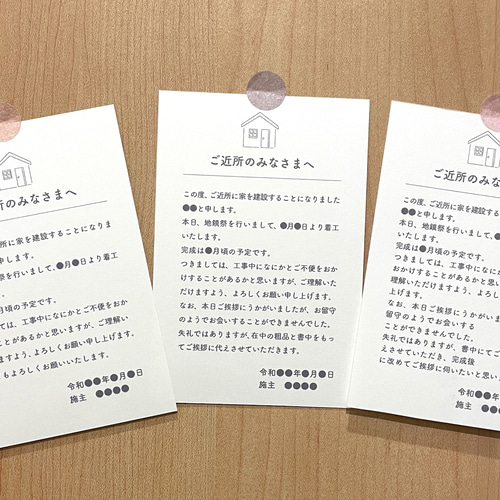 所のみなさまへ
所に家を建設することになりま
申します。
祭を行いまして、●月●日より着工
。
月頃の予定です。
ては、工事中になにかとご不便をおか
ことがあるかと思いますが、ご理解い
ますよう、よろしくお願い申し上げます。
もよろしくお願いいたします。
令和●●年●月●日
施主 ●●●●
ご近所のみなさまへ
この度、ご近所に家を建設することになりました
●●と申します。
本日、地鎮祭を行いまして、●月●日より着工
いたします。
完成は●月頃の予定です。
つきましては、工事中になにかとご不便をおか
けすることがあるかと思いますが、ご理解いた
だけますよう、よろしくお願い申し上げます。
なお、本日ご挨拶にうかがいましたが、お留守
のようでお会いすることができませんでした。
失礼ではありますが、在中の粗品と書中をもっ
てご挨拶に代えさせていただきます。
令和●●年●月●日
施主 ●●●●
ご近所のみな
この度、ご近所に家を建設することになり
●●と申します。
本日、地鎮祭を行いまして、●月●
いたします。
完成は●月頃の予定です。
つきましては、工事中になにか
おかけすることがあるかと思い
理解いただけますよう、よろし
上げます。
なお、本日ご挨拶にうかがい
留守のようでお会いする
ことができませんでした。
失礼ではありますが、書中にてご
えさせていただき、完成後
に改めてご挨拶に伺いたいと思い
令和●●年
施主 ●●●